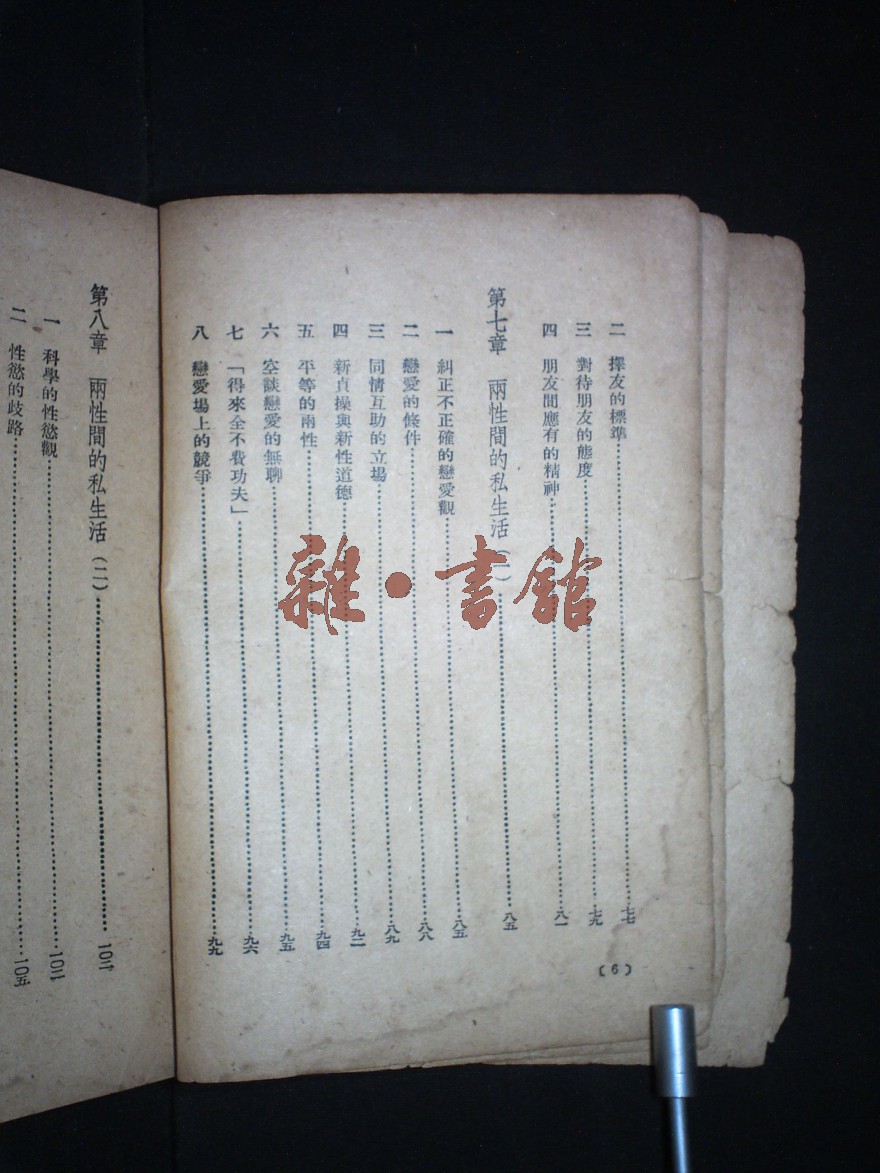 二　擇友的標準…………七七
三　對待朋友的態度…………七九
四　朋友間應有的精神…………八一
第七章　兩性間的私生活（一）…………八五
一　糾正不正確的戀愛觀…………八五
二　戀愛的條件…………八八
三　同情互助的立場…………八九
四　新貞操與新性道德…………九二
五　平等的兩性…………九四
六　空談戀愛的無聊…………九五
七　「得來全不費功夫」…………九六
八　戀愛場上的競爭…………九九
(6)
第八章　兩性間的私生活（二）…………一〇二
一　科學的性慾觀…………一〇二
二　性慾的歧路…………一〇五
雜·書館